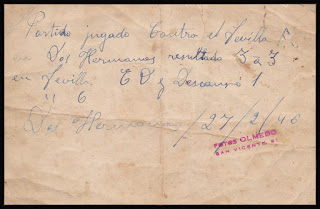 Partido jugado Contra el Sevilla F.C
en Dos Hermanas resultado 3 a 3
en Sevilla. E D y Descansó 1.
" 6
Dos Hermanas /27/2/46
FOTOS OLMEDO
SAN VICENTE, 51